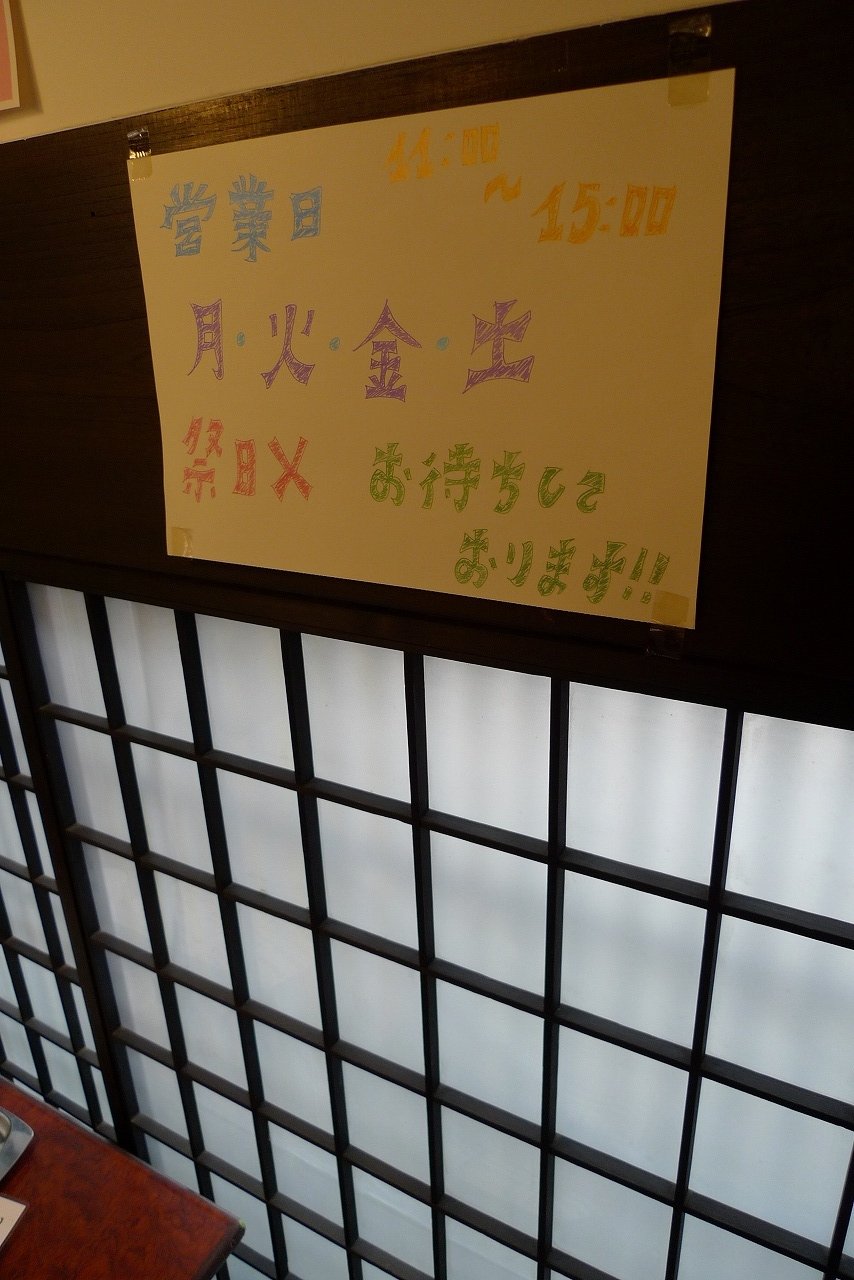 営業日 11:00～15:00
月・火・金・土
祭日X お待ちして
おります!!